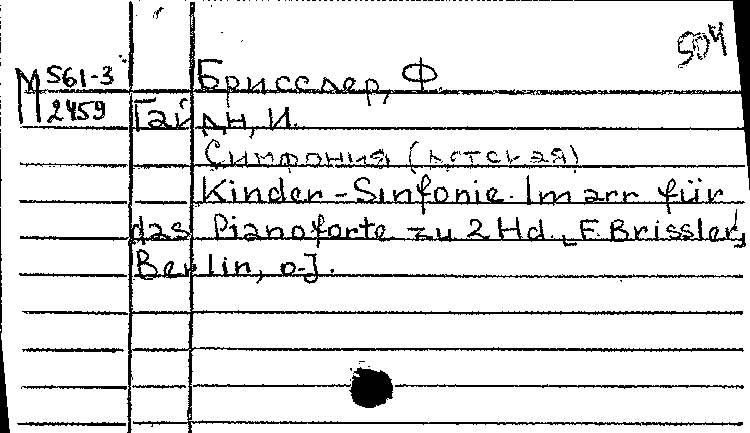 504
M 561-3
2459
Брисслер, Ф.
Гайдн, И.
Симфония (детская)
Kinder-Sinfonie. Im arr für
das Pianoforte zu 2 Hd. [F. Brissler]
Berlin, o.J.